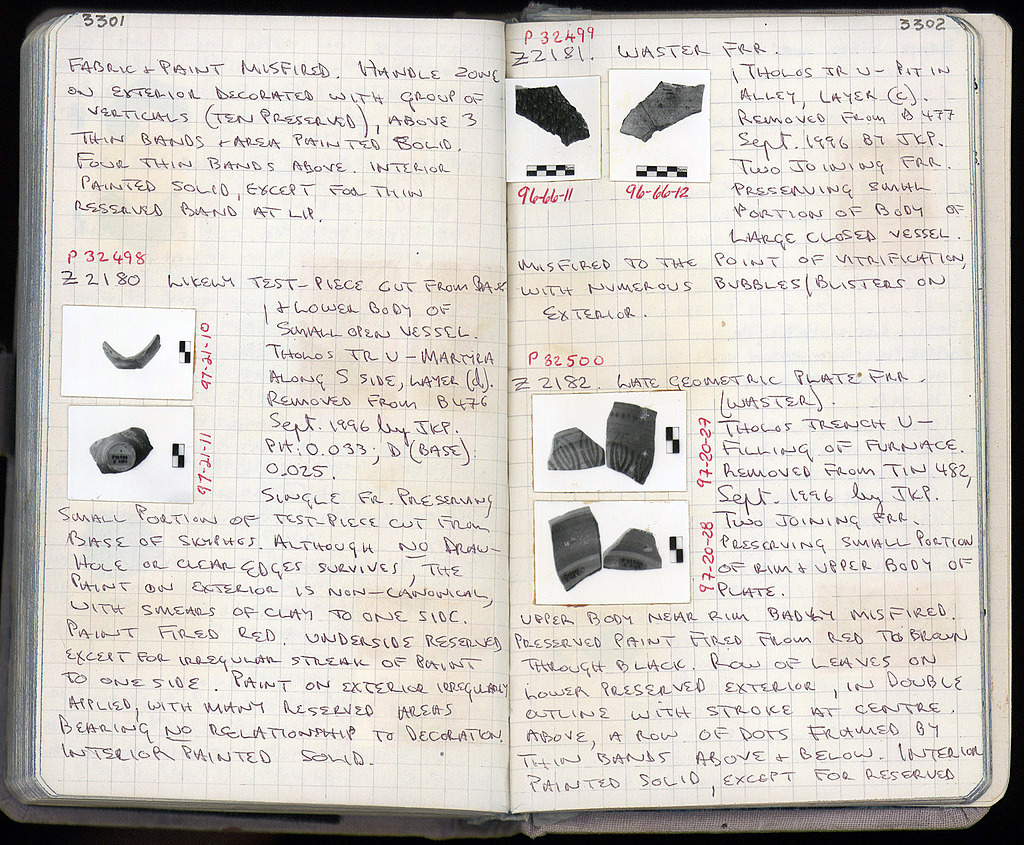 3301
FABRIC + PAINT MISFIRED. HANDLE ZONE
ON EXTERIOR DECORATED WITH GROUP OF
VERTICALS (TEN PRESERVED), ABOVE 3
THIN BANDS + AREA PAINTED SOLID.
FOUR THIN BANDS ABOVE. INTERIOR
PAINTED SOLID, EXCEPT FOR THIN
RESERVED BAND AT LIP.
P 32498
Z 2180 LIKELY TEST-PIECE CUT FROM BASE
+ LOWER BODY OF
SMALL OPEN VESSEL.
THOLOS TR U - MARTYRA
ALONG S SIDE, LAYER (d).
REMOVED FROM B 476
Sept. 1996 by JKP.
PH: 0.033; D (BASE):
0.025.
97-21-10
97-21-11
SINGLE FR. PRESERVING
SMALL PORTION OF TEST-PIECE CUT FROM
BASE OF SKYPHOS. ALTHOUGH NO DRAW-
HOLE OR CLEAR EDGES SURVIVES, THE
PAINT ON EXTERIOR IS NON-CANONICAL,
WITH SMEARS OF CLAY TO ONE SIDE.
PAINT FIRED RED. UNDERSIDE RESERVED
EXCEPT FOR IRREGULAR STREAK OF PAINT
TO ONE SIDE. PAINT ON EXTERIOR IRREGULARLY
APPLIED, WITH MANY RESERVED AREAS
BEARING NO RELATIONSHIP TO DECORATION.
INTERIOR PAINTED SOLID.
3302
P 32499
Z 2181. WASTER FRR.
THOLOS TR U - PIT IN
ALLEY, LAYER (c).
REMOVED FROM B 477
Sept. 1996 BY JKP.
TWO JOINING FRR.
PRESERVING SMALL
PORTION OF BODY OF
LARGE CLOSED VESSEL.
96-66-11
96-66-12
MISFIRED TO THE POINT OF VITRIFICATION,
WITH NUMEROUS BUBBLES/BLISTERS ON
EXTERIOR.
P 32500
Z 2182. LATE GEOMETRIC PLATE FRR.
(WASTER).
THOLOS TRENCH U -
FILLING OF FURNACE.
REMOVED FROM TIN 482,
Sept. 1996 by JKP.
TWO JOINING FRR.
PRESERVING SMALL PORTION
OF RIM + UPPER BODY OF
PLATE.
97-20-29
97-20-28
UPPER BODY NEAR RIM BADLY MISFIRED.
PRESERVED PAINT FIRED FROM RED TO BROWN
THROUGH BLACK. ROW OF LEAVES ON
LOWER PRESERVED EXTERIOR, IN DOUBLE
OUTLINE WITH STROKE AT CENTRE.
ABOVE, A ROW OF DOTS FRAMED BY
THIN BANDS ABOVE + BELOW. INTERIOR
PAINTED SOLID, EXCEPT FOR RESERVED